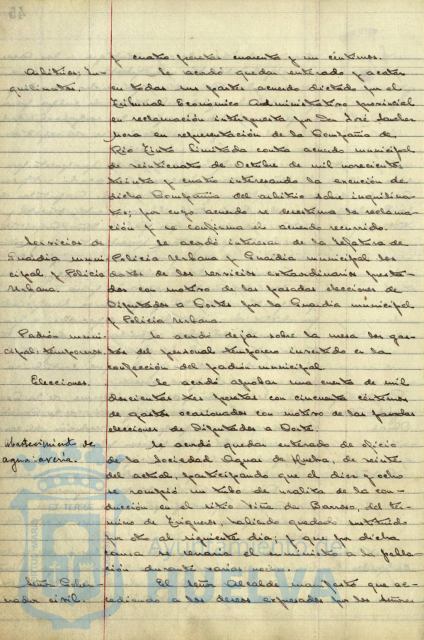 y cuatro pesetas cuarenta y un céntimos.
Arbitrios: In-
quilinatos.
Se acordó quedar enterado y acatar
en todas sus partes acuerdo dictado por el
Tribunal Económico Administrativo provincial
en reclamación interpuesta por Don José Sanchez
Mora en representación de la Compañía de
Rio Tinto limitada contra acuerdo municipal
de veinticuatro de Octubre de mil novecientos
treinta y cuatro interesando la exención de
dicha Compañía del arbitrio sobre inquilina-
tos; por cuyo acuerdo se desestima la reclama-
ción y se confirma el acuerdo recurrido.
Servicios de
Guardia muni-
cipal y Policia
Urbana.
Se acordó interesar de la Jefatura de
Policia Urbana y Guardia municipal los
datos de los servicios extraordinarios presta-
dos con motivo de las pasadas elecciones de
Diputados a Cortes por la Guardia municipal
y Policia Urbana.
Padrón muni-
cipal: temporeros.
Se acordó dejar sobre la mesa los gas-
tos del personal temporero invertido en la
confección del padrón municipal.
Elecciones.
Se acordó aprobar una cuenta de mil
doscientas tres pesetas con cincuenta céntimos
de gastos ocasionados con motivo de las pasadas
elecciones de Diputados a Cortes.
Abastecimiento de
agua: avería.
Se acordó quedar enterado de oficio
de la Sociedad Aguas de Huelva, de veinte
del actual, participando que el diez y ocho
se rompió un tubo de uralita de la con-
ducción en el sitio Viña de Barroso, del tér-
mino de Trigueros, habiendo quedado sustituido
por otro al siguiente día; y que por dicha
causa se
el suministro a la pobla-
ción durante varias
Señor Gober-
nador civil.
El Señor Alcalde manifestó que ac-
cediendo a los deseos expresados por los Señores
Ayuntamiento de
HUELVA